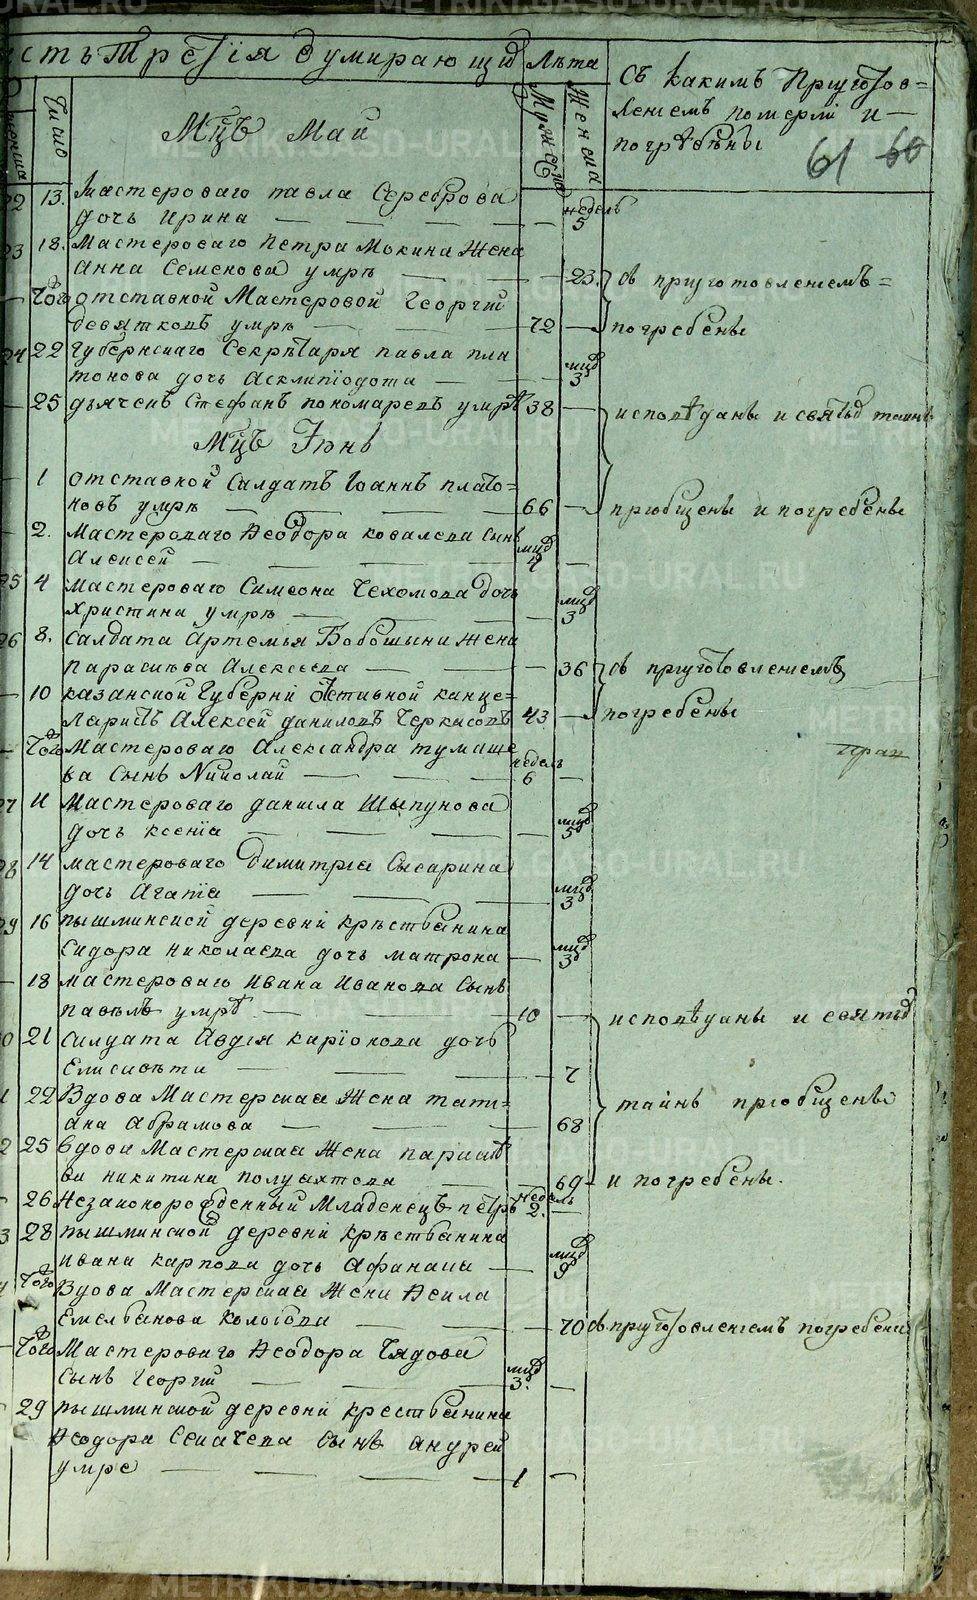 часть третїя о умирающихъ Лѣта
Число
Мужеска
Женска
Съ какимъ Пригтов=
ленїемъ померли и
погребены
61 60
Мцъ Май
22 13. Мастероваго Павла Сереброва
дочь Ирина — недель 5
23 18. Мастероваго Петра Мокина Жена
Анна Семенова умрѣ — 23. съ приуготовленїемъ=
— Того отставной Мастеровой Георгий
Девятковъ умрѣ — 72 — погребены
24 22 Губернскаго Секрѣтаря Павла Пла
тонова дочь Асклипїодота — мцъ 3
— 25 дьячекъ Стефанъ Пономаревъ умрѣ 38 — исповѣданы и святыхъ таинъ
Мцъ Іюнь
— 1 отставной Салдатъ Іоаннъ Плато=
новъ умрѣ — 66 — приобщены и погребены
— 2. Мастероваго Ѳеодора Ковалева сынъ
Алексей — мцъ 4 —
25 4 Мастероваго Симеона Чехомова дочь
Христина умрѣ — мцъ 3
26 8. Салдата Артемья Бобошина жена
Парасковa Алексеева — 36 съ приуготовленїемъ
— 10 Казанской Губернї отставной канце=
ляристъ Алексей Даниловъ Черкасовъ 43 — погребены
— Того Мастероваго Александра Тумаше
ва сынъ Николай — недель 6 —
прап
27 11 Мастероваго Данила Шыпунова
дочь Ксенїа — мцъ 5
28 14 Мастероваго Димитрїа Сысарина
дочь Агапїа — мцъ 3
29 16 Пышминской деревнї крѣстьянина
Сидора Николаева дочь Матрона — мцъ 3
— 18 Мастероваго Ивана Иванова сынъ
Павелъ умрѣ — 10 — исповѣданы и святыхъ
30 21 Салдата Авдея Карїонова дочь
Елисавета — 7
22 Вдова Мастерская Жена Тати=
ана Абрамова — 68 таинъ приобщены
25 Вдова Мастерская Жена Параске
ва Никитина Полуяктова — 69 и погребены.
— 26 Незаконорожденный Младенецъ Петръ недель 2. —
3 28 Пышминской деревнї крѣстьянина
Ивана Карпова дочь Афанасиа — мцъ 9
Того Вдова Мастерская Жена Неѡнила
Емельянова — 70 съ приуготовленїемъ погребена
— Того Мастероваго Ѳеодора Чядова
сынъ Георгий — мцъ 3. —
29 Пышминской деревнї крестьянина
Ѳеодора Секачева сынъ Андрей
умре — 1 —